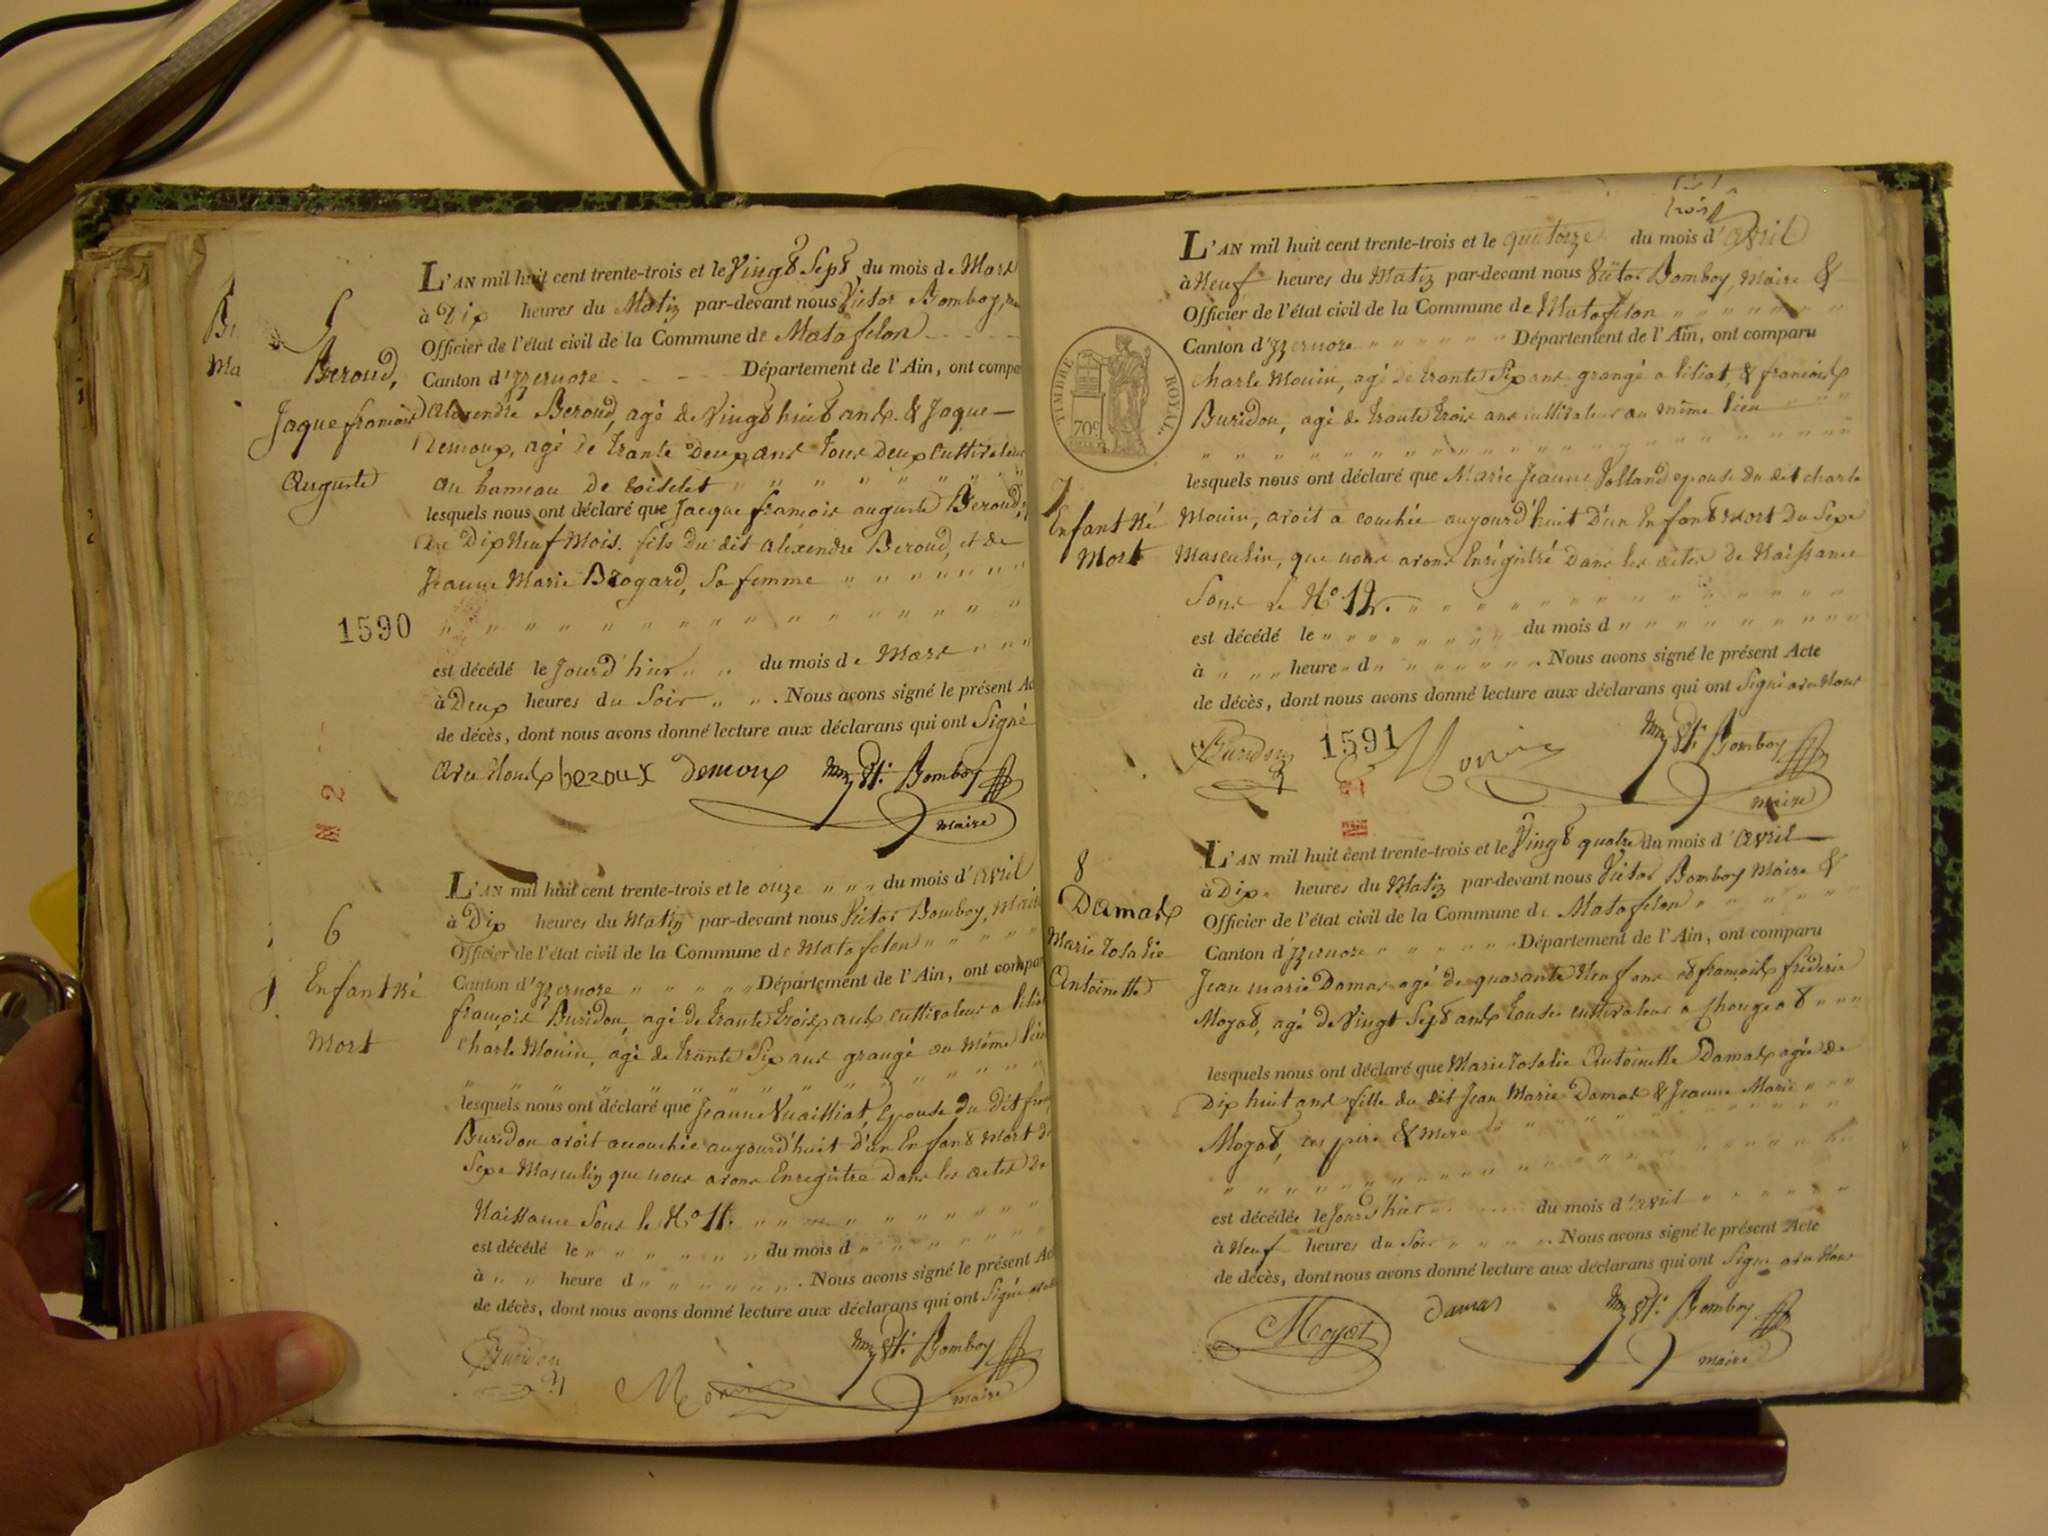 5
Beroud,
Jaque françois
Auguste
L'AN mil huit cent trente-trois et le Vingt Sept du mois de Mars
à Dix heures du Matin par-devant nous Victor Bomboy,
Officier de l'état civil de la Commune de Matafelon
Canton d'Yzernore Département de l'Ain, ont compa
alexendre Beroud, agé de Vingt huit ans & Jaque
Demoux, agé de trante Deux ans tous Deux Cultivateurs
au hameau de Coiselet " " " " " "
lesquels nous ont déclaré que Jacque françois auguste Beroud,
Dix Neuf Mois. fils du dit alexendre Beroud, et de
Jeanne Marie Brogard, Sa femme " " " " " "
1590
est décédé le Jour d'hier " " du mois de Mars " " "
à Deux heures du Soir " " . Nous avons signé le présent Ac
de décès, dont nous avons donné lecture aux déclarans qui ont Signé
avec Nous beroux demoux Bomboy
maire
M 2
6
Enfant Né
Mort
L'AN mil huit cent trente-trois et le onze " " " du mois d'avril
à Dix heures du Matin par-devant nous Victor Bomboy, Mai
Officier de l'état civil de la Commune de Matafelon " " " " "
Canton d'Yzernore " " " " " Département de l'Ain, ont compar
françois Buridon, agé de trante trois ans cultivateur a
Charle Mouin, agé de trante Six ans grangé au même lieu
lesquels nous ont déclaré que Jeanne Vuailliat, Epouse du Dit
Buridon avoit accouchée aujourd'huit d'un Enfant Mort
Sexe Masculin que nous avons Enregistre Dans les actes de
Naissance Sous le No 11. " " " " " " "
est décédé le " " " " " " du mois d " " " " " "
à " " heure d " " " " " " . Nous avons signé le présent Ac
de décès, dont nous avons donné lecture aux déclarans qui ont Signé
Buridon
Bomboy
maire
trois
TIMBRE ROYAL.
70c
7
Enfant Né
Mort
L'AN mil huit cent trente-trois et le quatorze du mois d'avril
à Neuf heures du Matin par-devant nous Victor Bomboy, Maire &
Officier de l'état civil de la Commune de Matafelon " " " " " "
Canton d'Yzernore " " " " " " Département de l'Ain, ont comparu
Charle Mouin, agé de trante Six ans grangé a & francois
Buridon, agé de trante trois ans cultivateur au même lieu " " "
lesquels nous ont déclaré que Marie Jeanne epouse du dit charle
Mouin, avoit a couchée aujourd'huit D'un Enfant Mort Du Sexe
Masculin, que nous avons Enrégistré Dans les actes de Naissance
Sous le No 12. " " " " " " "
est décédé le " " " " " " " du mois d " " " " " " "
à " " " heure d " " " " " " . Nous avons signé le présent Acte
de décès, dont nous avons donné lecture aux déclarans qui ont Signé avec Nous
Buridon 1591 Bomboy
maire
8
Damas
Marie
Antoinette
L'AN mil huit cent trente-trois et le Vingt quatre du mois d'avril
à Dix heures du Matin par-devant nous Victor Bomboy Maire &
Officier de l'état civil de la Commune de Matafelon " " " " "
Canton d'Yzernore " " " " " " Département de l'Ain, ont comparu
Jean marie Damas agé de quarante Neuf ans & françois fréderic
Moyat, agé de Vingt Sept ans cultivateur a " " "
lesquels nous ont déclaré que Marie Antoinette Damas agée de
Dix huit ans fille du dit Jean Marie Damas & Jeanne Marie " " "
Moyat, ces père & mere " " " " " "
est décédée le Jour d'hier du mois d'avril " " " " "
à Neuf heures du Soir " " " " . Nous avons signé le présent Acte
de décès, dont nous avons donné lecture aux déclarans qui ont Signé avec Nous
Moyat damas Bomboy
maire